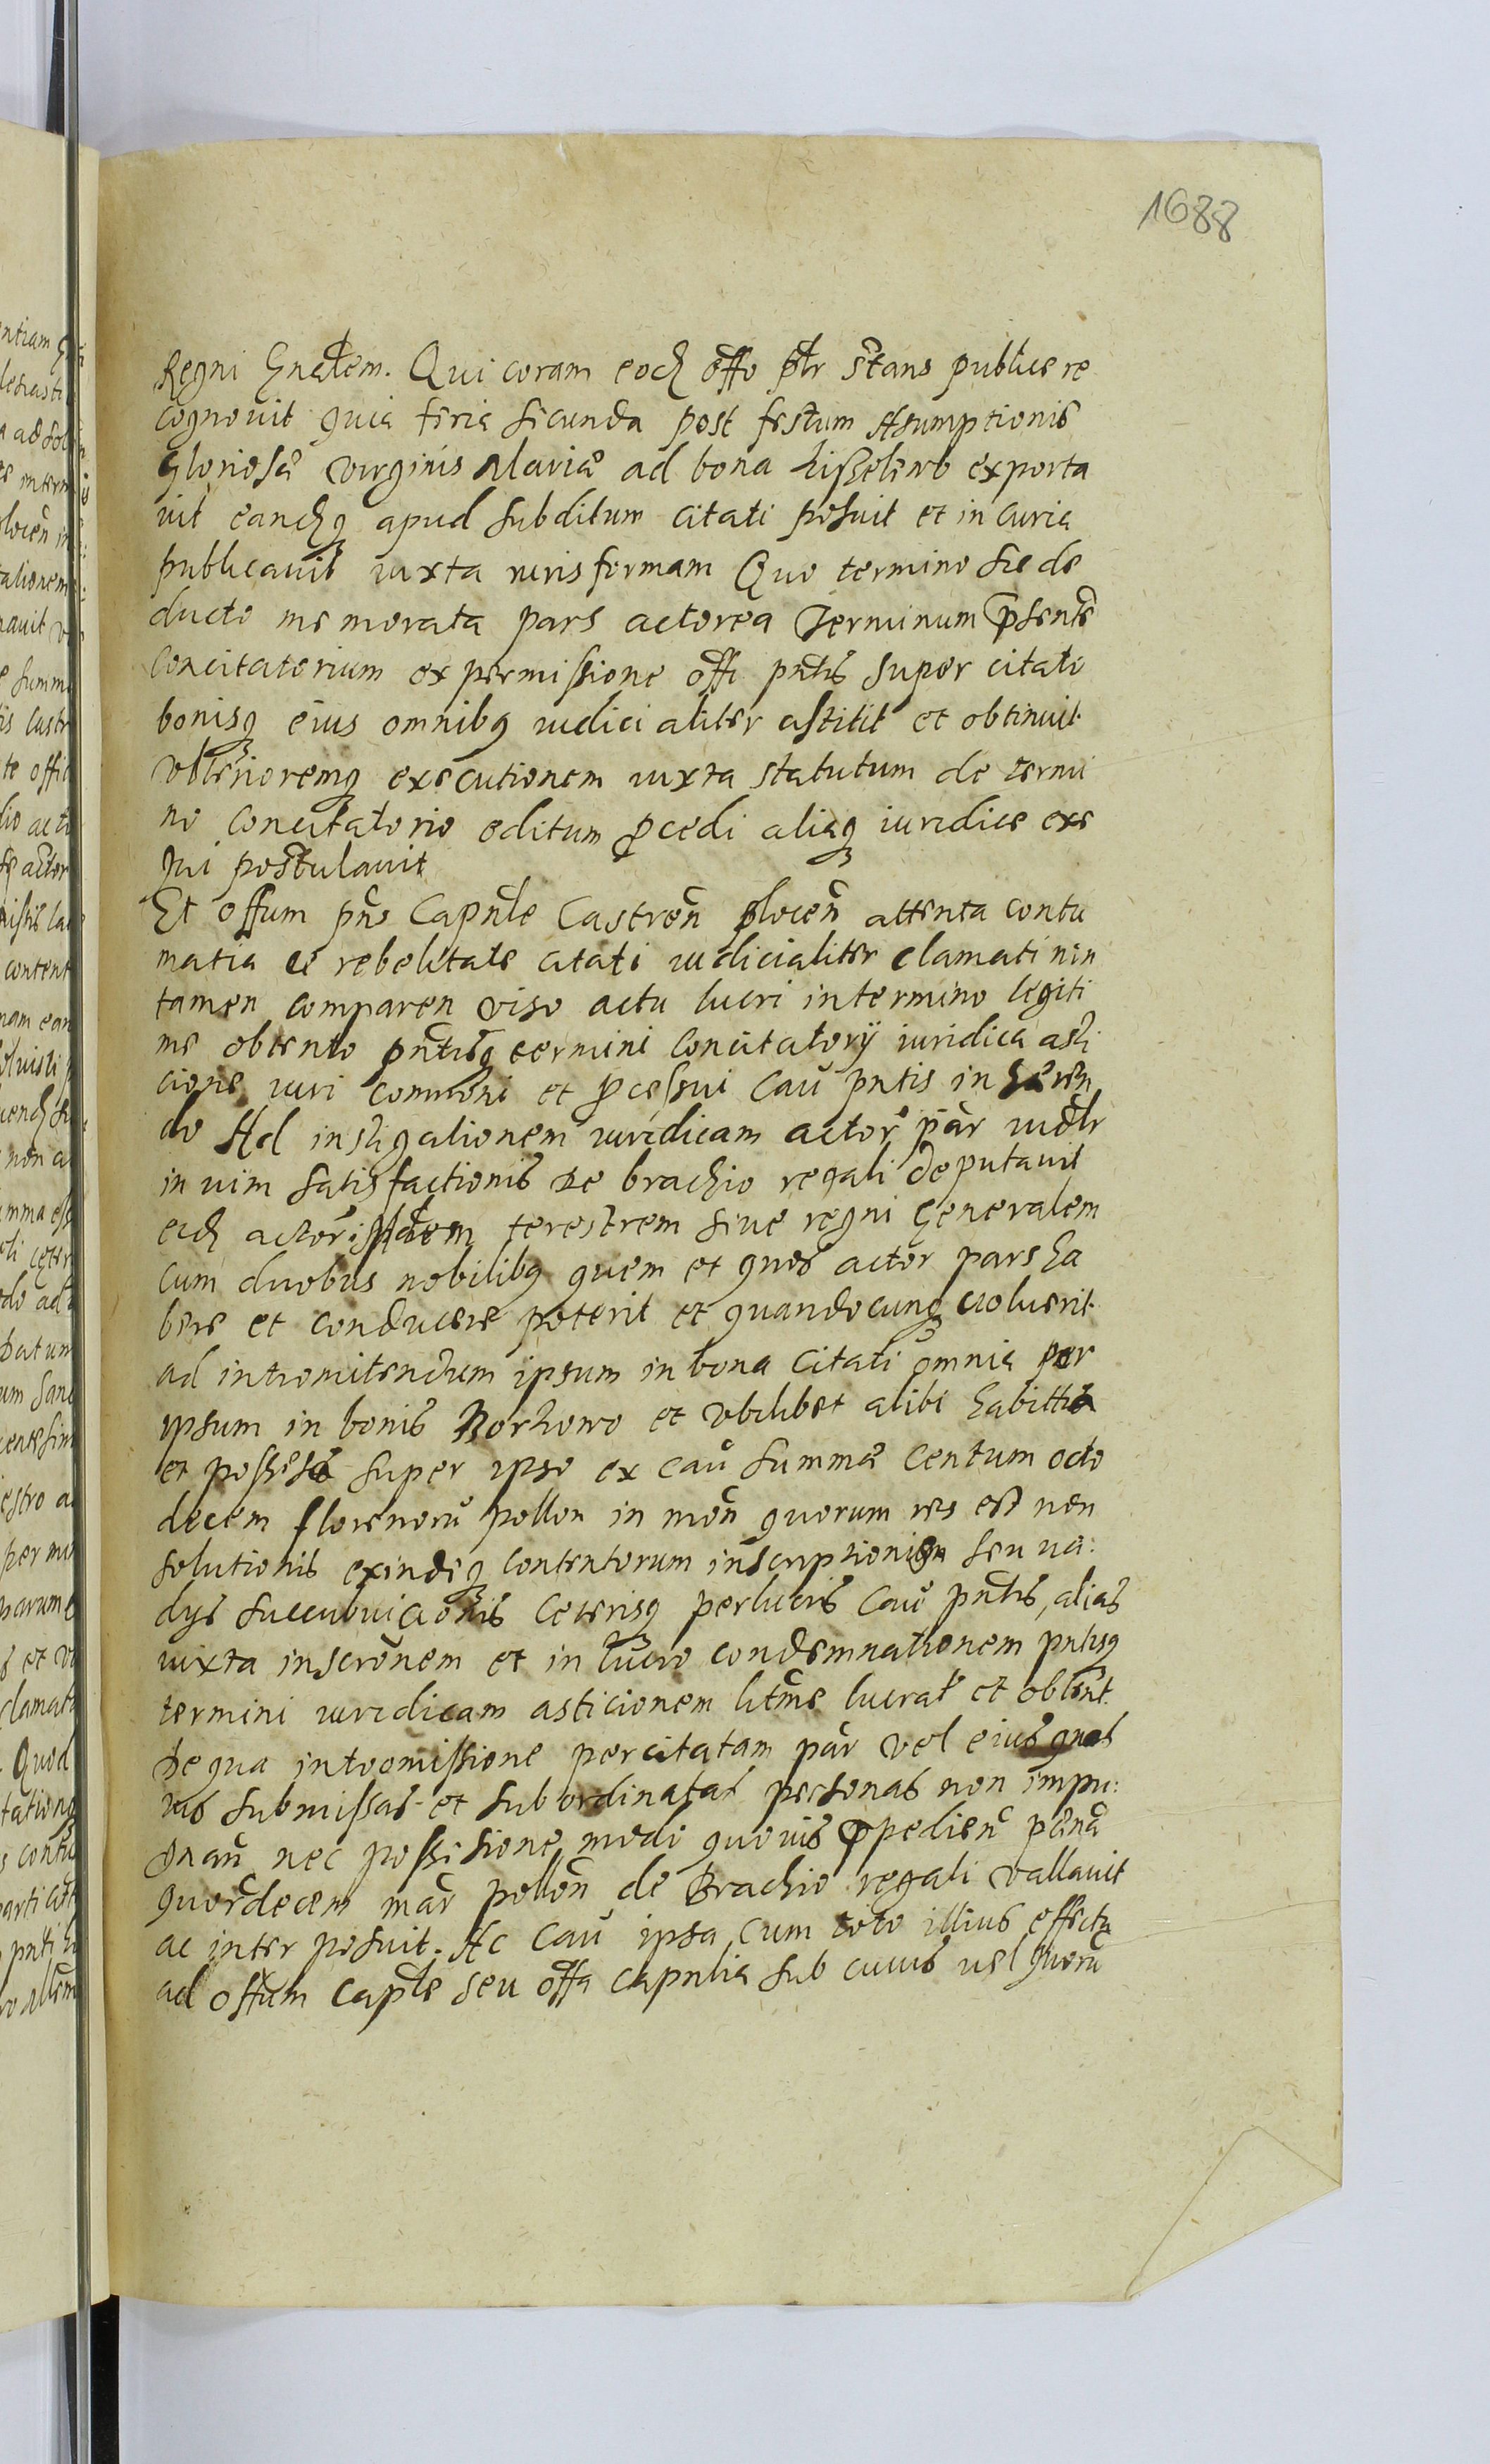 1688
Regni Gnalem. Qui coram eod offo pltr stans publice re
cognovit quia feria secunda post festum Assumptionis
Gloriosæ Virginis Mariæ ad bona exporta
vit eandq apud subditum citati posuit et in Curia
publicauit iuxta iuris formam Quo termino sic de
ducto memorata pars actorea Terminum psente
Concitatorium ex permissione offi pntis super citato
bonisq eius omnibq iudicialiter astitit et obtinuit
vlterioremq executionem iuxta statutum de termi
no Concitatorio editum pcedi aliaq iuridice exe
qui postulauit
Et offum pns Capnle Castren plocen attenta contu
matia et rebelitate citati iudicialiter clamati nin
tamen comparen viso actu lucri in termino legiti
me obtento pntisq termini Concitatorij iuridica asti
cione iuri communi et pcessui Cau pntis inheren
do Ad instigationem iuridicam actor par iudlr
in vim satisfactionis de brachio regali deputauit
eid actori Mtlem terestrem siue regni Generalem
cum duobus nobilibq quem et quos actor pars ha
bere et conducere poterit et quandocunq voluerit
ad intromitendum ipsum in bona Citati omnia per
ipsum in bonis Borzowo et vbilibet alibi habitta
et possessa super ipso ex cau summæ Centum octo
decem florenoru pollon in mon quorum res est non
solutionis exindeq contentorum inscriptioni seu va:
dys succubuicionis Ceterisq perlucris Cau pntis, alias
iuxta inscronem et in lucro condemnationem pntisq
termini iuridicam asticionem litme lucrat et obtent
De qua intromissione percitatam par vel eius quas
vis submissas et subordinatas personas non impu:
gnan nec possesione modi quouis ppedien pæna
quordecem mar pollon de Brachio regali vallauit
ac inter posuit. Ac Cau ipsa cum toto illius effectu
ad offum Capnle seu offa capnlia sub cuius vel quoru